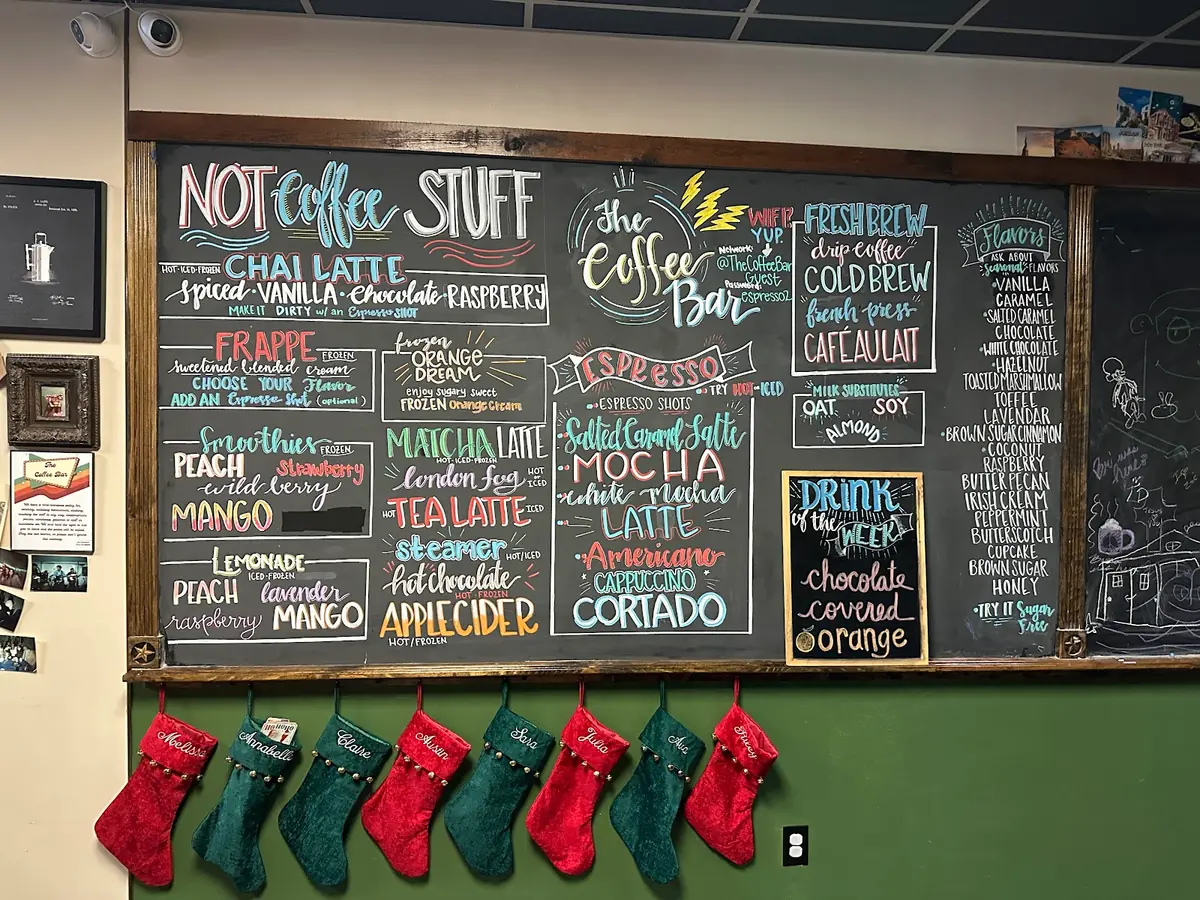 NOT Coffee STUFF
HOT·ICED·FROZEN CHAI LATTE
spiced·VANILLA·Chocolate·RASPBERRY
MAKE IT DIRTY w/ an Espresso SHOT
FRAPPE FROZEN
sweetened blended cream
CHOOSE YOUR Flavor
ADD AN Espresso Shot (optional)
Smoothies FROZEN
PEACH strawberry
wild berry
MANGO
LEMONADE
ICED·FROZEN
PEACH lavender
raspberry MANGO
frozen
ORANGE
DREAM
enjoy sugary sweet
FROZEN orange cream
MATCHA LATTE
HOT·ICED·FROZEN
london fog HOT ICED
HOT TEA LATTE ICED
steamer HOT/ICED
hot chocolate
HOT·FROZEN
APPLE CIDER
HOT/FROZEN
the
Coffee
Bar
WIFI?
YUP.
Network:
@TheCoffeeBar
Guest
Password:
espresso2
ESPRESSO
·TRY HOT·ICED
·ESPRESSO SHOTS
·Salted Caramel Latte
·MOCHA
·white mocha
LATTE
·Americano
CAPPUCCINO
CORTADO
FRESH BREW
drip coffee
COLD BREW
french press
CAFÉ AU LAIT
MILK SUBSTITUTES
OAT SOY
ALMOND
DRINK
of the
WEEK
chocolate
covered
orange
Flavors
ASK ABOUT
Seasonal FLAVORS
·VANILLA
CARAMEL
·SALTED CARAMEL
CHOCOLATE
·WHITE CHOCOLATE
·HAZELNUT
TOASTED MARSHMALLOW
TOFFEE
LAVENDAR
·BROWN SUGAR CINNAMON
·COCONUT
RASPBERRY
BUTTER PECAN
IRISH CREAM
PEPPERMINT
BUTTERSCOTCH
CUPCAKE
BROWN SUGAR
HONEY
·TRY IT Sugar
Free
The
Coffee Bar
Melissa
Annabelle
Claire
Austin
Sara
Julia
Ava